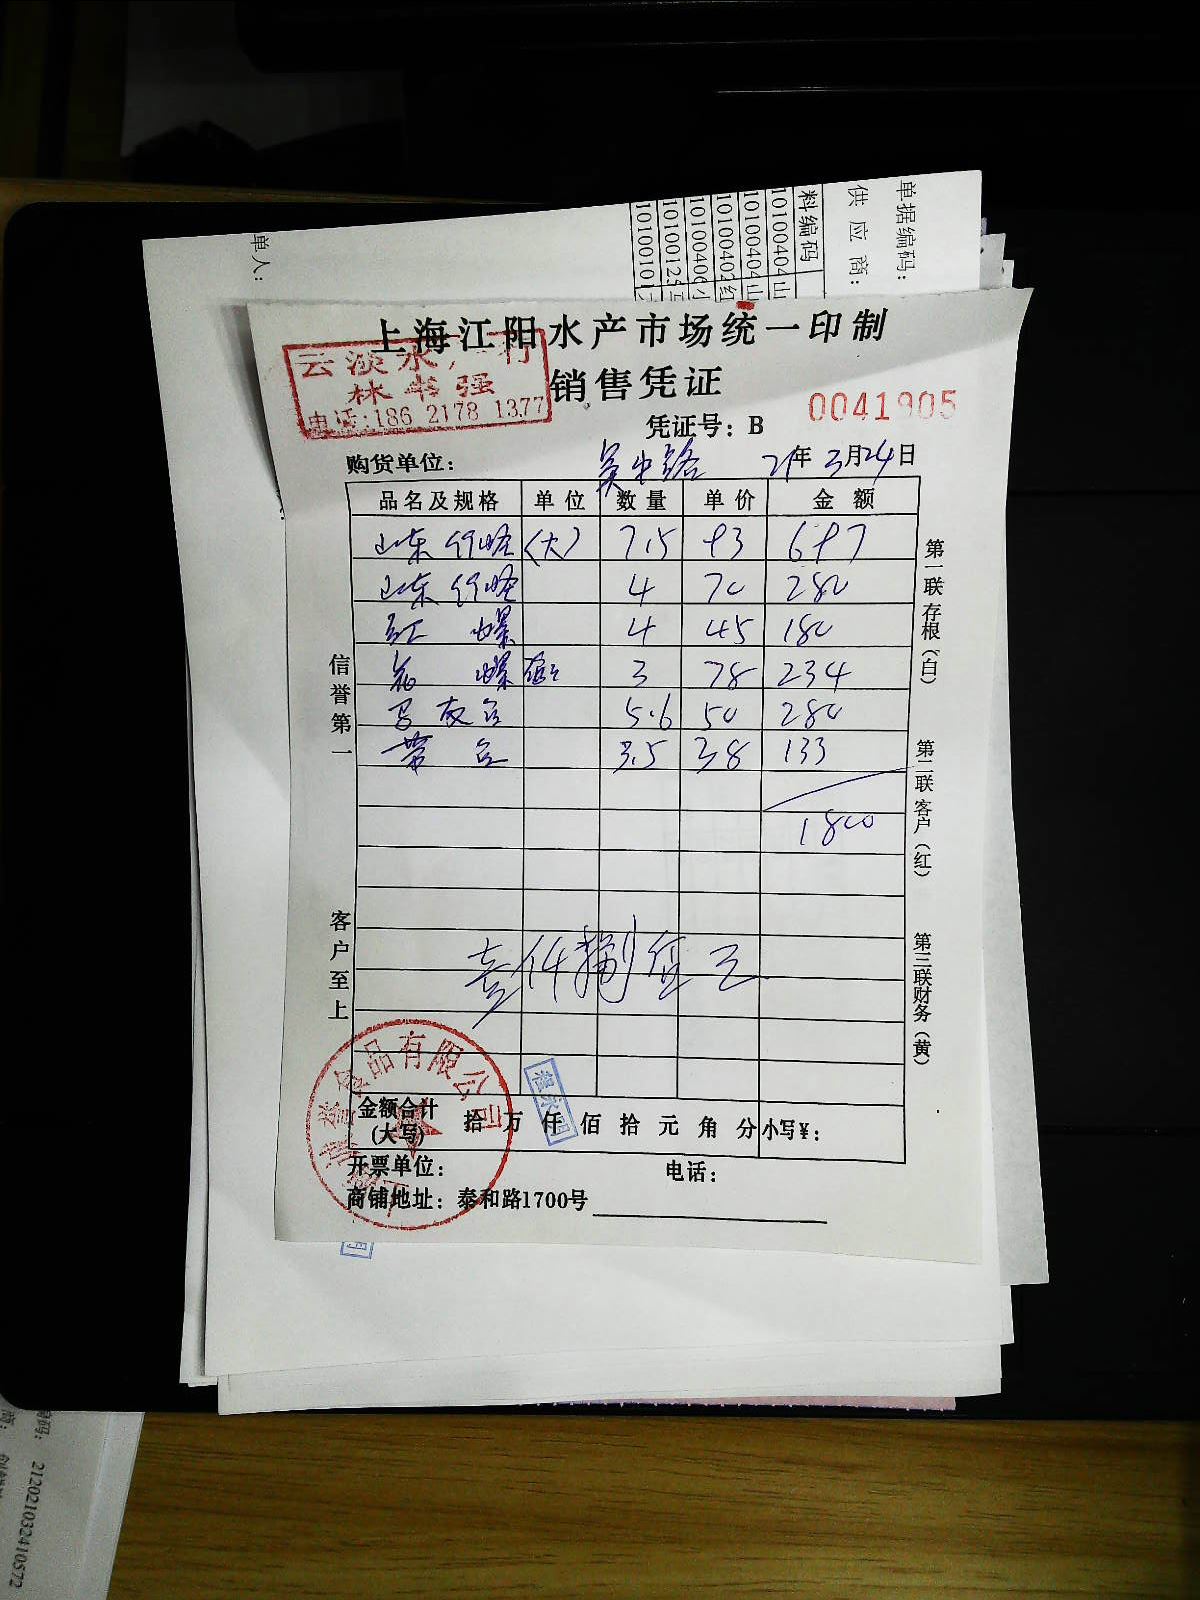 单据编码：
供应商：
料编码
10100404山
10100404山
10100402红
10100406小
10100125
10100101
单人：
上海江阳水产市场统一印制
云淡水产行
林书强
电话：186 2178 1377
销售凭证
凭证号：B 0041905
购货单位：吴中路 21年3月24日
品名及规格 单位 数量 单价 金额
山东竹蛏 (大) 7.5 93 697
山东竹蛏 4 70 280
红螺 4 45 180
花螺 3 78 234
5.6 50 280
带鱼 3.5 38 133
1800
壹仟捌佰元
信誉第一
客户至上
第一联存根（白）
第二联客户（红）
第三联财务（黄）
食品有限公司
金额合计(大写) 拾 万 仟 佰 拾 元 角 分 小写¥：
开票单位： 电话：
商铺地址：泰和路1700号
212021032410572